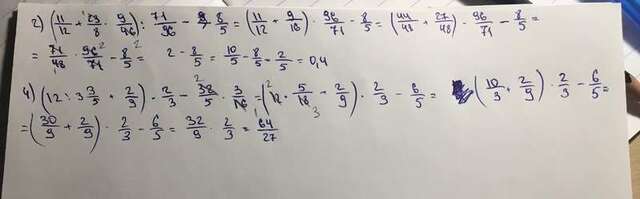 2) (11/12 + 23/8 · 9/46) : 71/96 - 8/5 = (11/12 + 9/16) · 96/71 - 8/5 = (44/48 + 27/48) · 96/71 - 8/5 =
= 71/48 · 96/71 - 8/5 = 2 - 8/5 = 10/5 - 8/5 = 2/5 = 0,4
4) (12 : 3 3/5 + 2/9) · 2/3 - 38/5 · 3/19 = (12 · 5/18 + 2/9) · 2/3 - 6/5 = (10/3 + 2/9) · 2/3 - 6/5 =
= (30/9 + 2/9) · 2/3 - 6/5 = 32/9 · 2/3 = 64/27